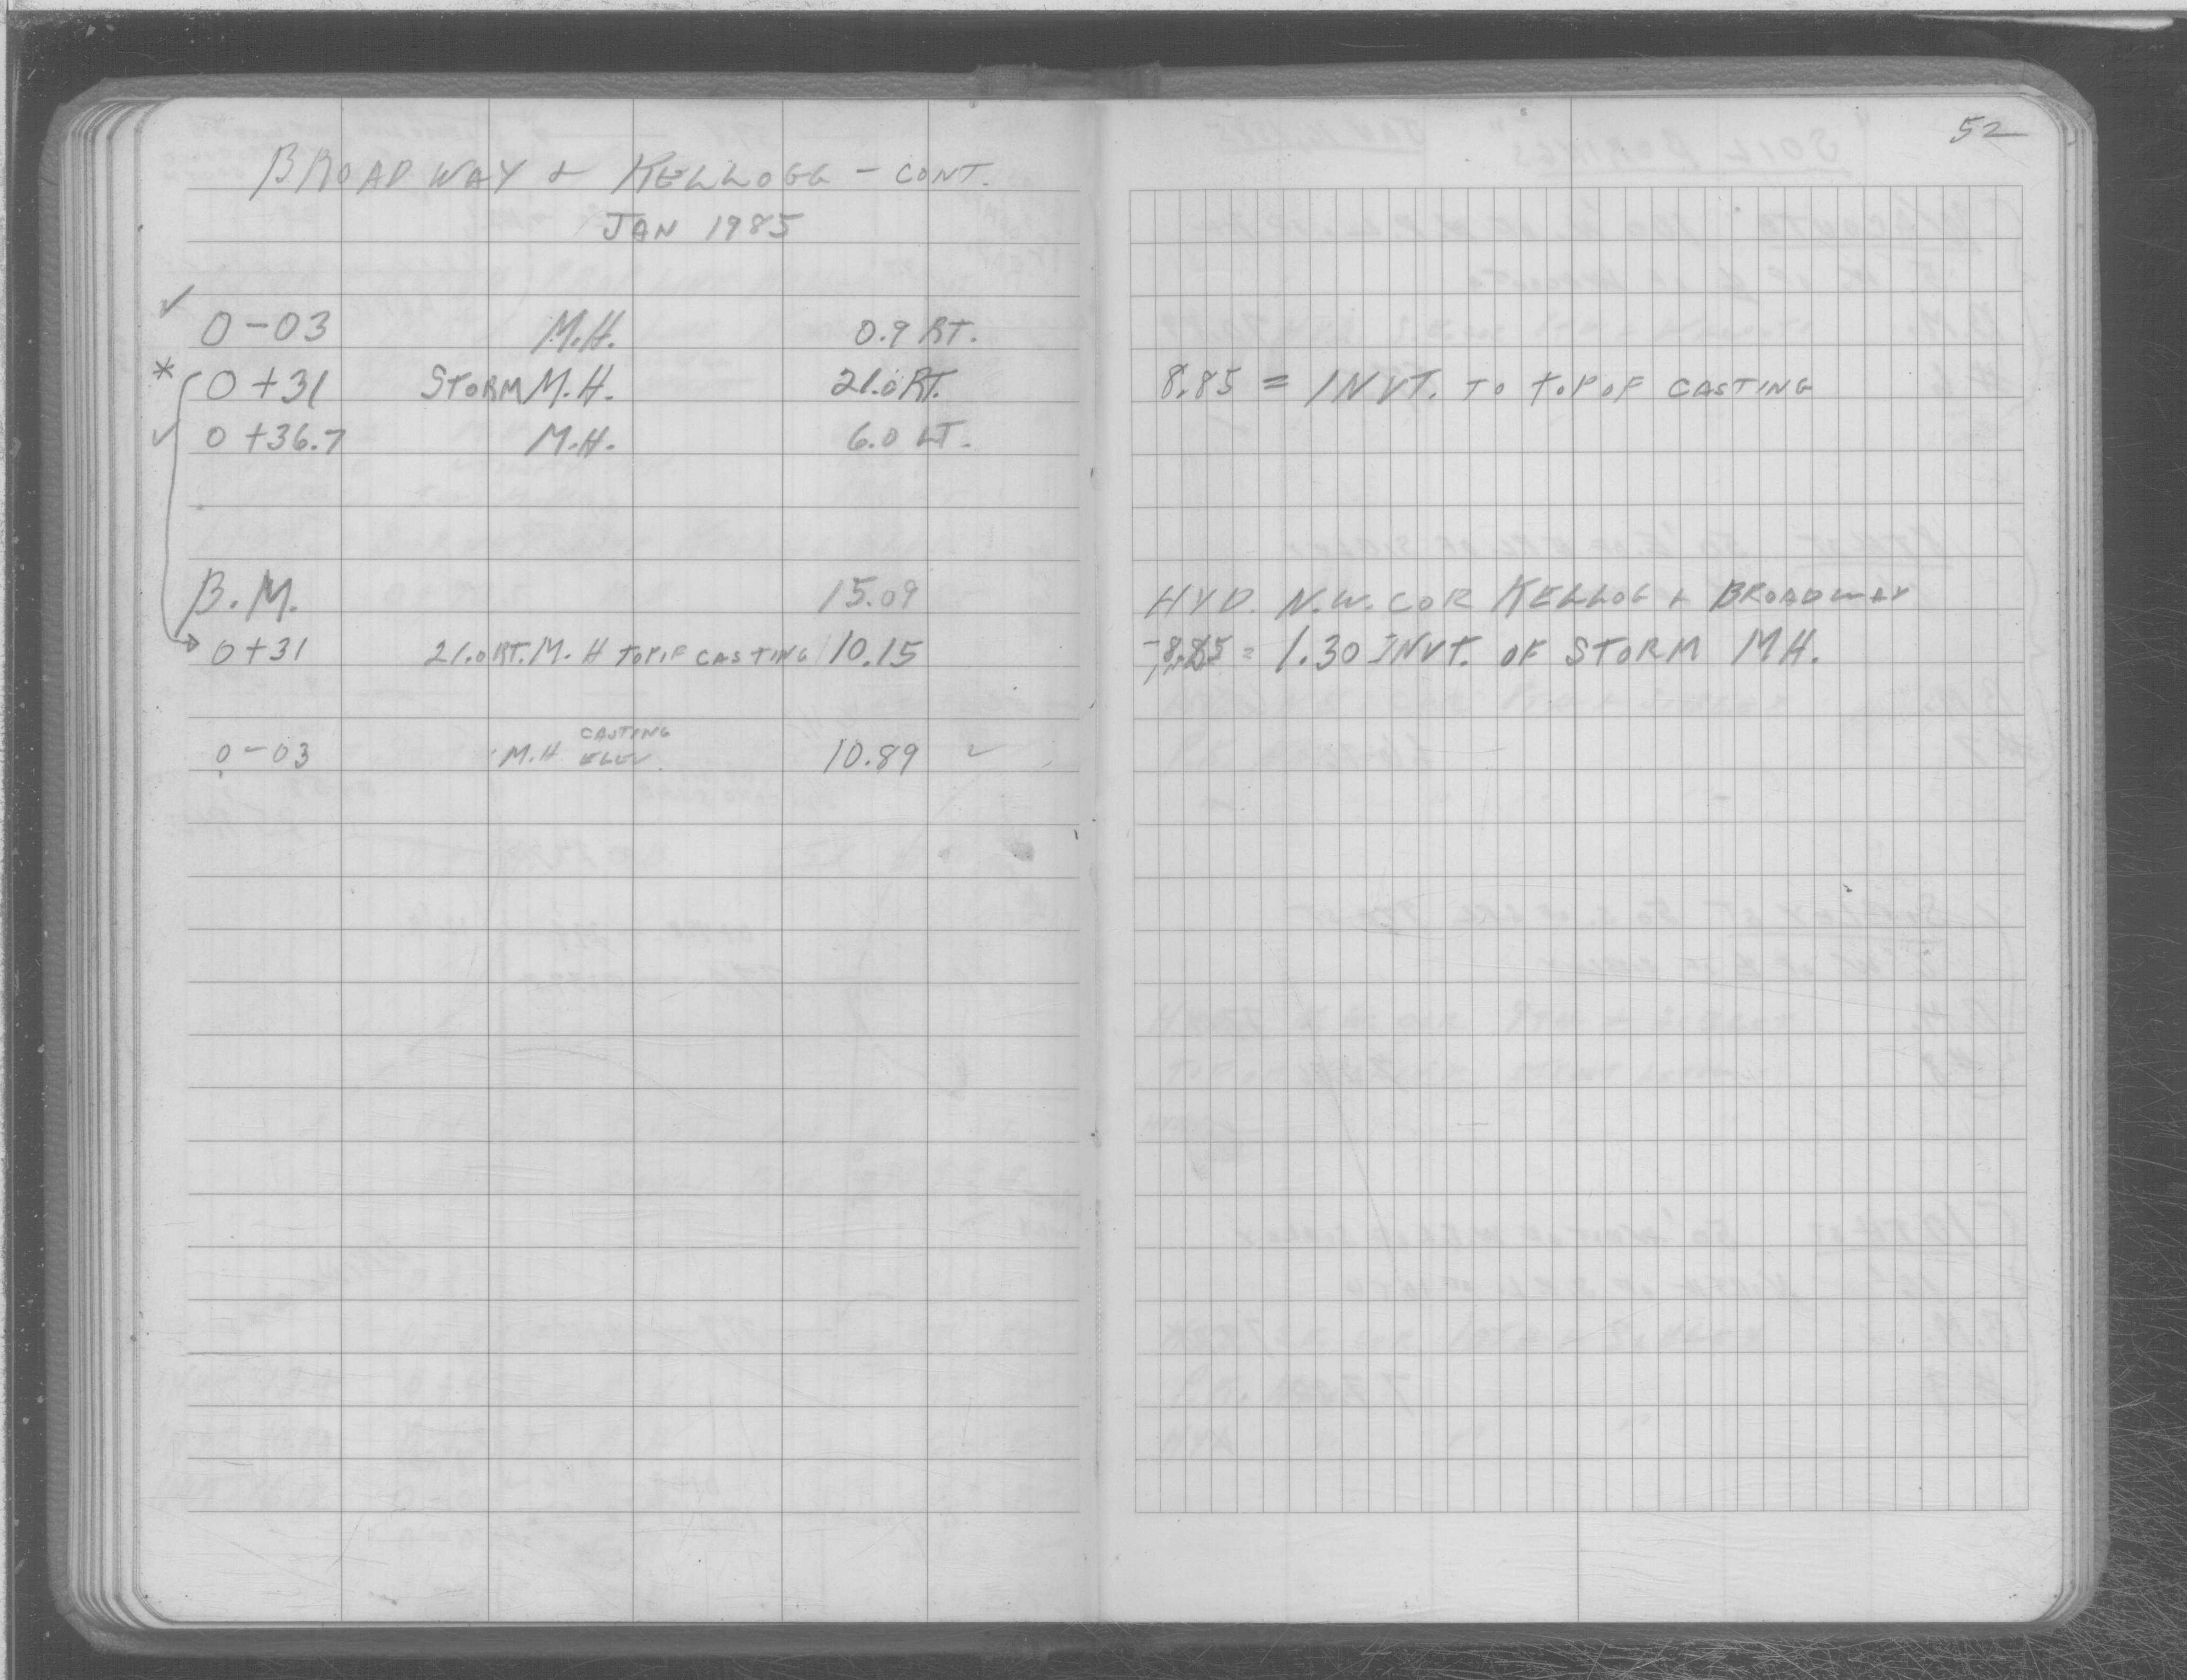 52
BROADWAY & KELLOGG - CONT.
JAN 1985
✓ 0-03 M.H. 0.9 RT.
* 0+31 STORM M.H. 21.0 RT. 8.85 = INVT. TO TOP OF CASTING
✓ 0+36.7 M.H. 6.0 LT.
B.M. 15.09 HYD. N.W. COR KELLOG & BROADWAY
0+31 21.0 RT. M.H TOP OF CASTING 10.15 -8.85 = 1.30 INVT. OF STORM MH.
0-03 M.H CASTING ELEV. 10.89 ✓